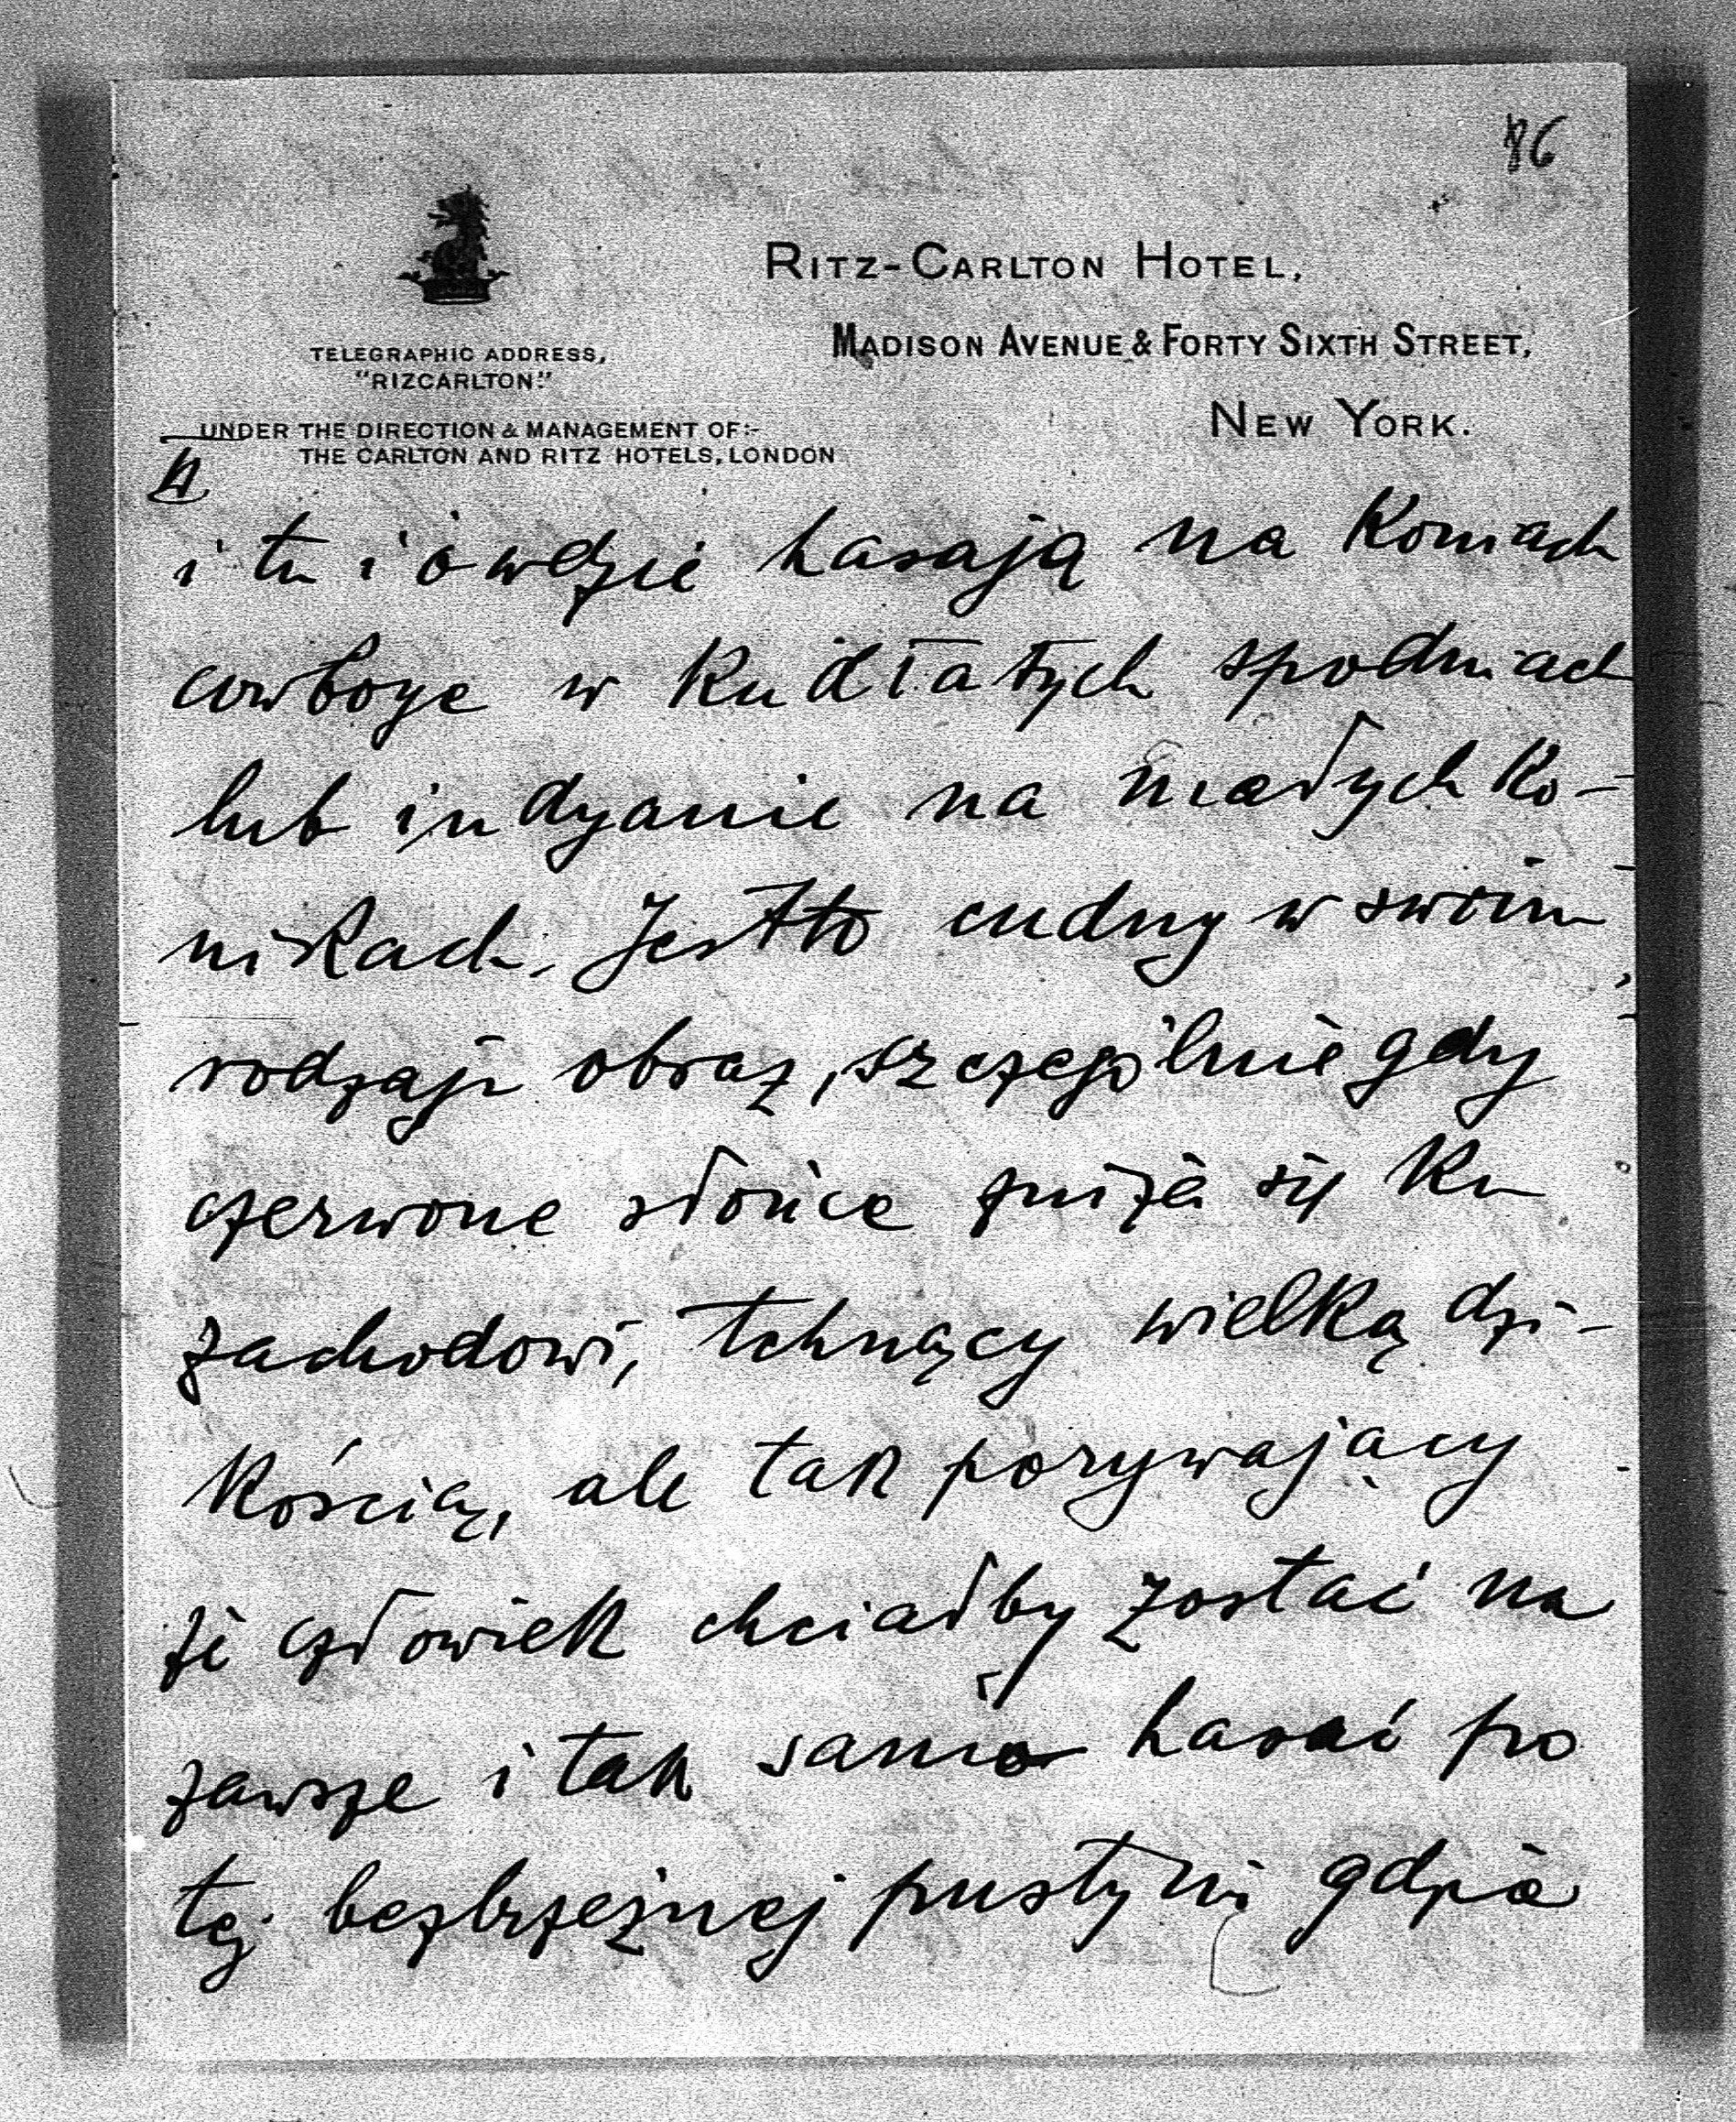 86
RITZ-CARLTON HOTEL,
MADISON AVENUE & FORTY SIXTH STREET,
NEW YORK.
TELEGRAPHIC ADDRESS,
"RIZCARLTON."
UNDER THE DIRECTION & MANAGEMENT OF:-
THE CARLTON AND RITZ HOTELS, LONDON
i tu i ówdzie hasają na koniach
cowboye w kudłatych spodniach
lub indyanie na małych ko-
nikach. Jestto cudny w swoim
rodzaju obraz, szczególnie gdy
czerwone słońce zniża się ku
zachodowi, tchnący wielką dzi-
kością, ale tak porywający
że człowiek chciałby zostać na
zawsze i tak samo hasać po
tej bezbrzeżnej pustyni gdzie